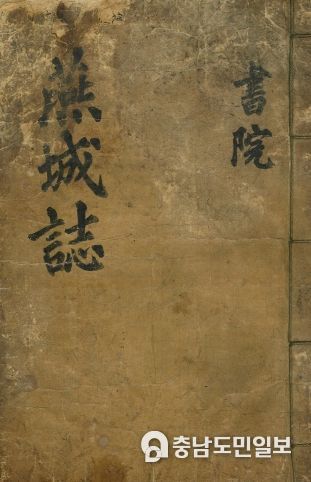 書院
燕城誌
충남도민일보